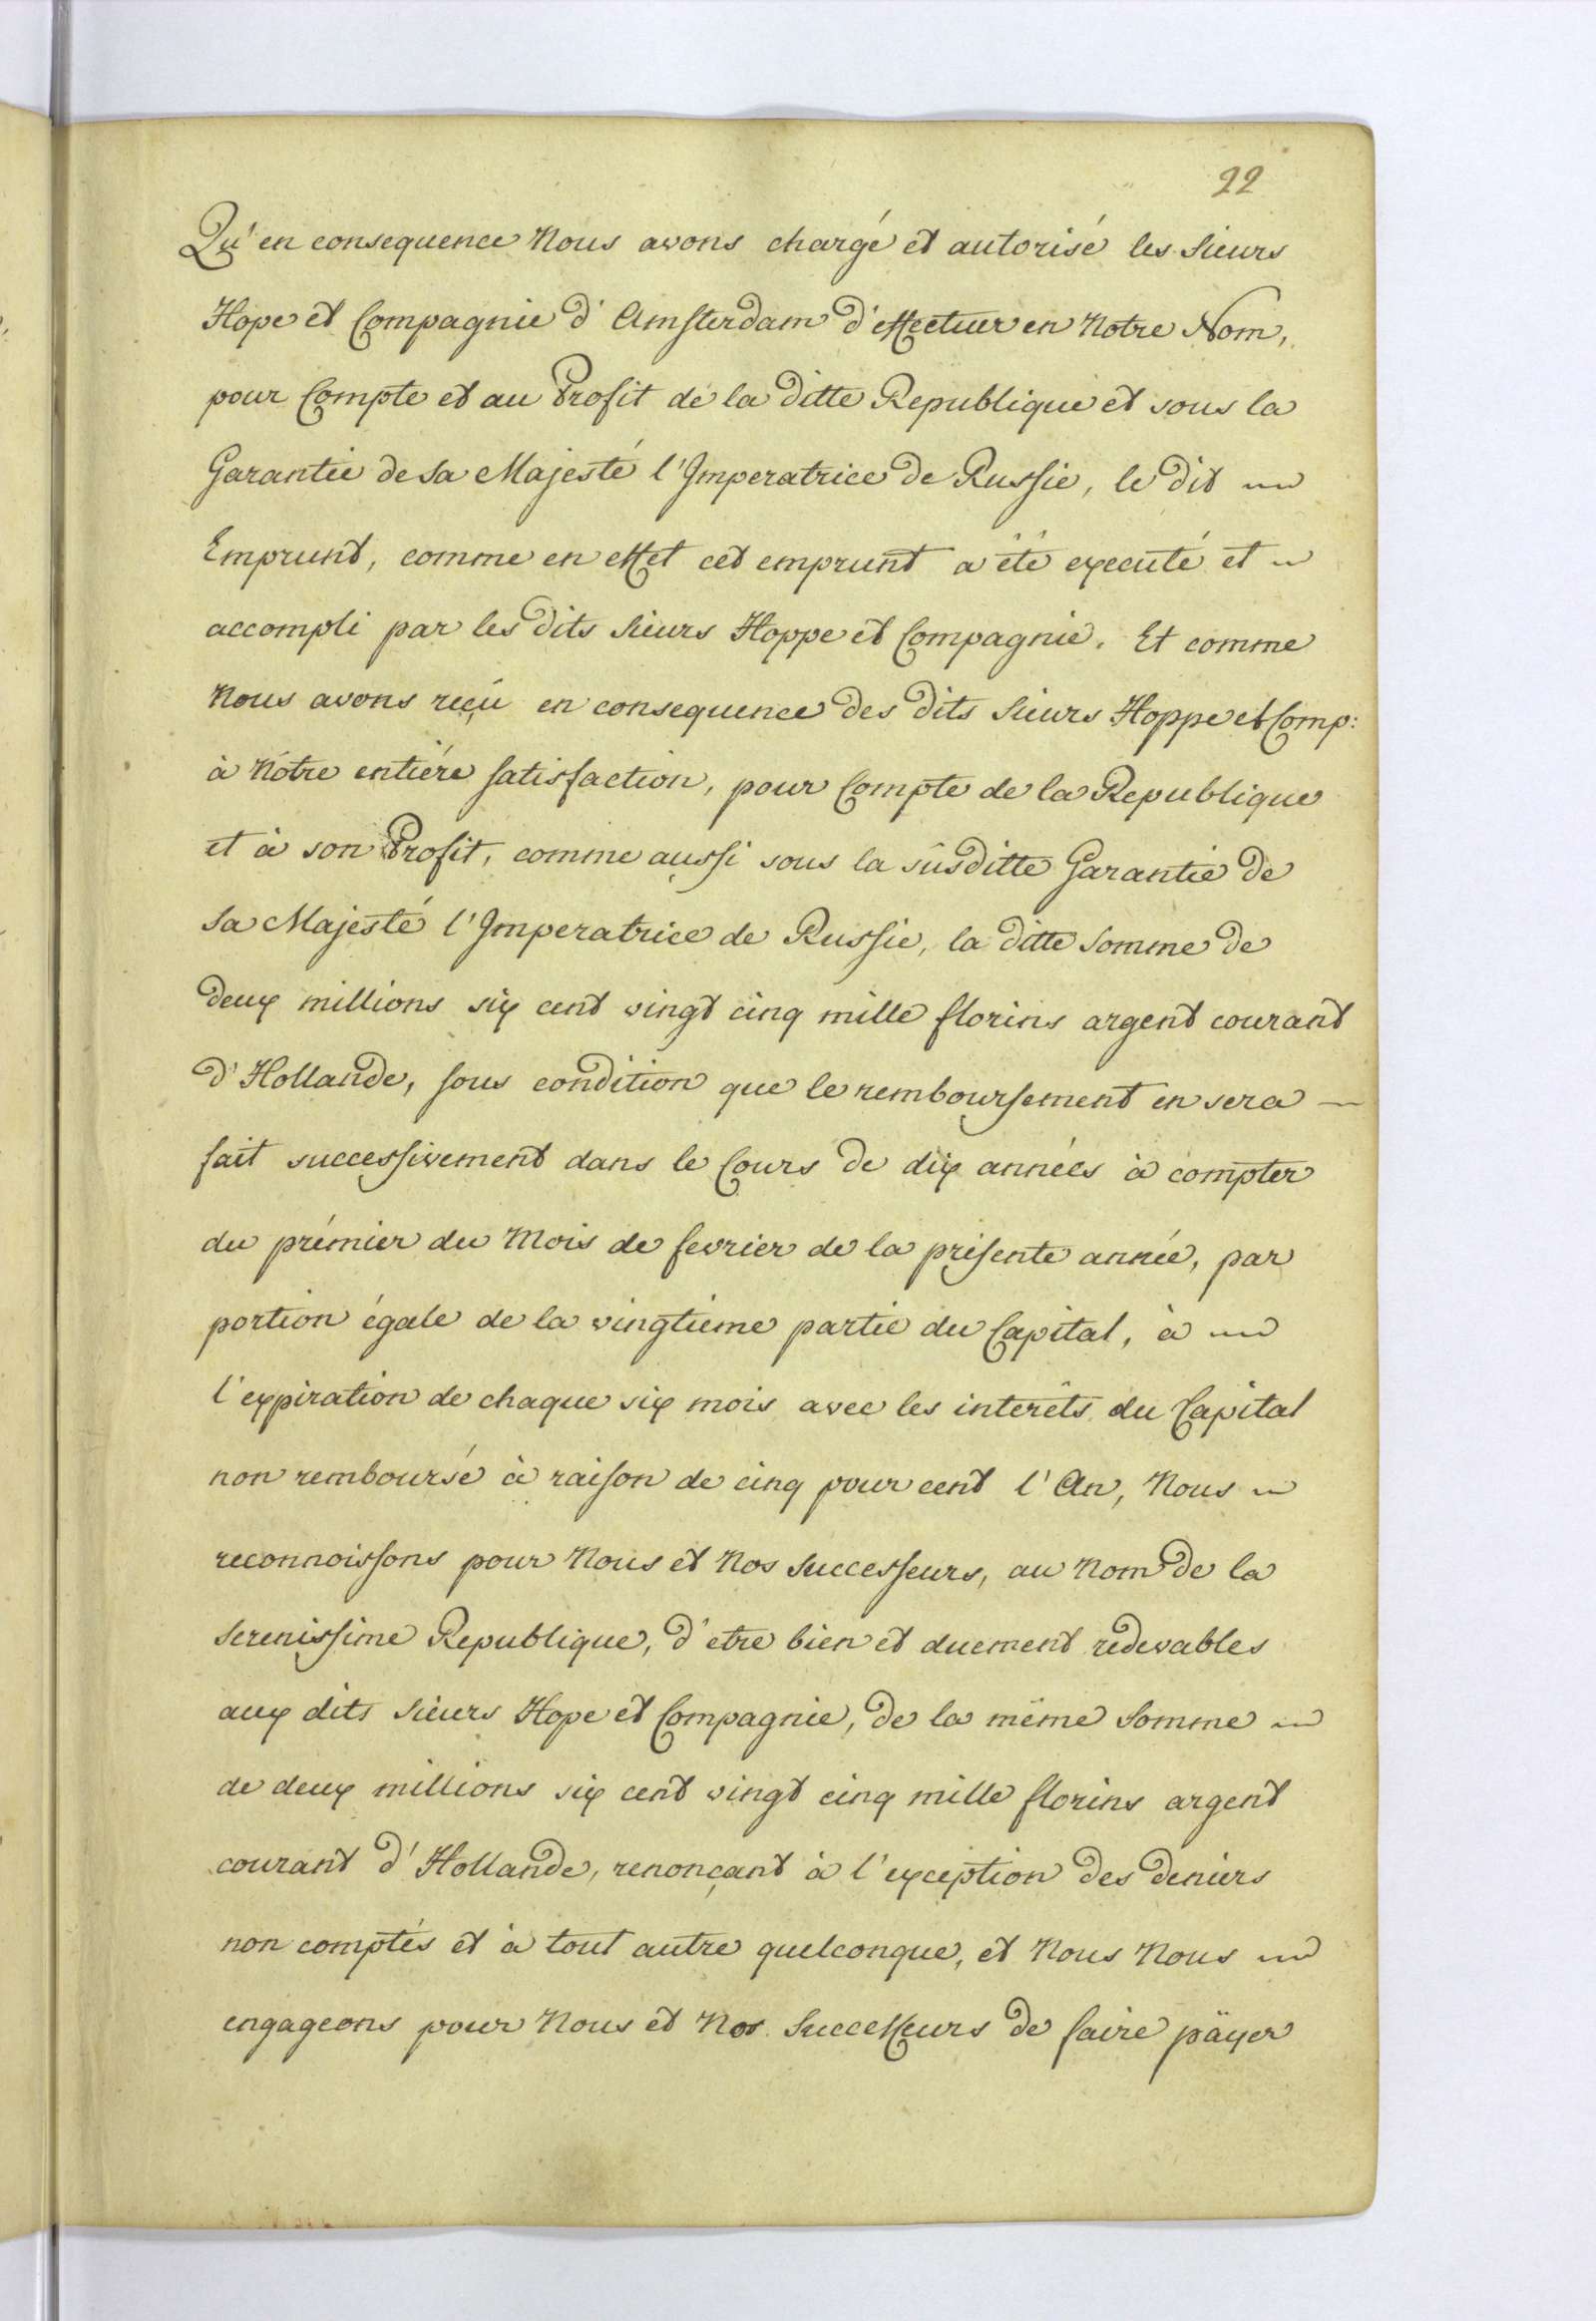 22
Qu'en consequence Nous avons chargé et autorisé les Sieurs
Hope et Compagnie d'Amsterdam d'effectuer en Notre Nom,
pour Compte et au Profit de la ditte Republique et sous la
Garantie de Sa Majesté l'Imperatrice de Russie, le dit
Emprunt, comme en effet cet emprunt a été executé et
accompli par les dits Sieurs Hoppe et Compagnie. Et comme
Nous avons reçû en consequence des dits Sieurs Hoppe et Comp:
à Nôtre entiére satisfaction, pour Compte de la Republique
et à son Profit, comme aussi sous la sûsditte Garantie de
Sa Majesté l'Imperatrice de Russie, la ditte Somme de
deux millions six cent vingt cinq mille florins argent courant
d'Hollande, sous condition que le remboursement en sera —
fait successivement dans le Cours de dix années à compter
du prémier du Mois de fevrier de la présente année, par
portion égale de la vingtieme partie du Capital, à
l'expiration de chaque six mois avec les interêts du Capital
non remboursé à raison de cinq pour cent l'An, Nous
reconnoissons pour Nous et Nos Successeurs, au Nom de la
Serenissime Republique, d'etre bien et duement redevables
aux dits Sieurs Hope et Compagnie, de la même Somme
de deux millions six cent vingt cinq mille florins argent
courant d'Hollande, renonçant à l'exception des deniers
non comptés et à tout autre quelconque, et Nous Nous
engageons pour Nous et Nos Successeurs de faire päyer